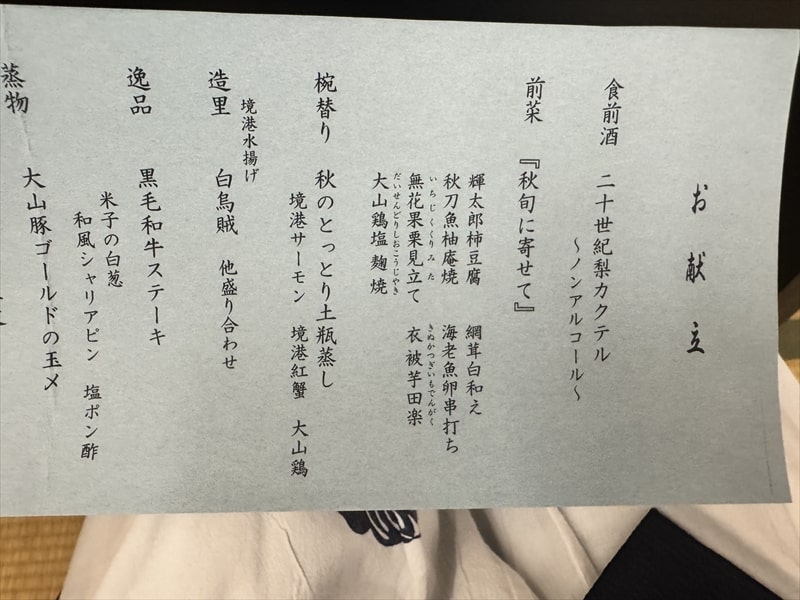 お献立
食前酒 二十世紀梨カクテル
~ノンアルコール~
前菜 『秋旬に寄せて』
輝太郎柿豆腐 網茸白和え
秋刀魚柚庵焼 海老魚卵串打ち
無花果栗見立て 衣被芋田楽
いちじくくりみた きぬかつぎいもでんがく
大山鶏塩麹焼
だいせんどりしおこうじやき
椀替り 秋のとっとり土瓶蒸し
境港サーモン 境港紅蟹 大山鶏
造里 境港水揚げ 白烏賊 他盛り合わせ
逸品 黒毛和牛ステーキ
米子の白葱
和風シャリアピン 塩ポン酢
蒸物 大山豚ゴールドの玉〆